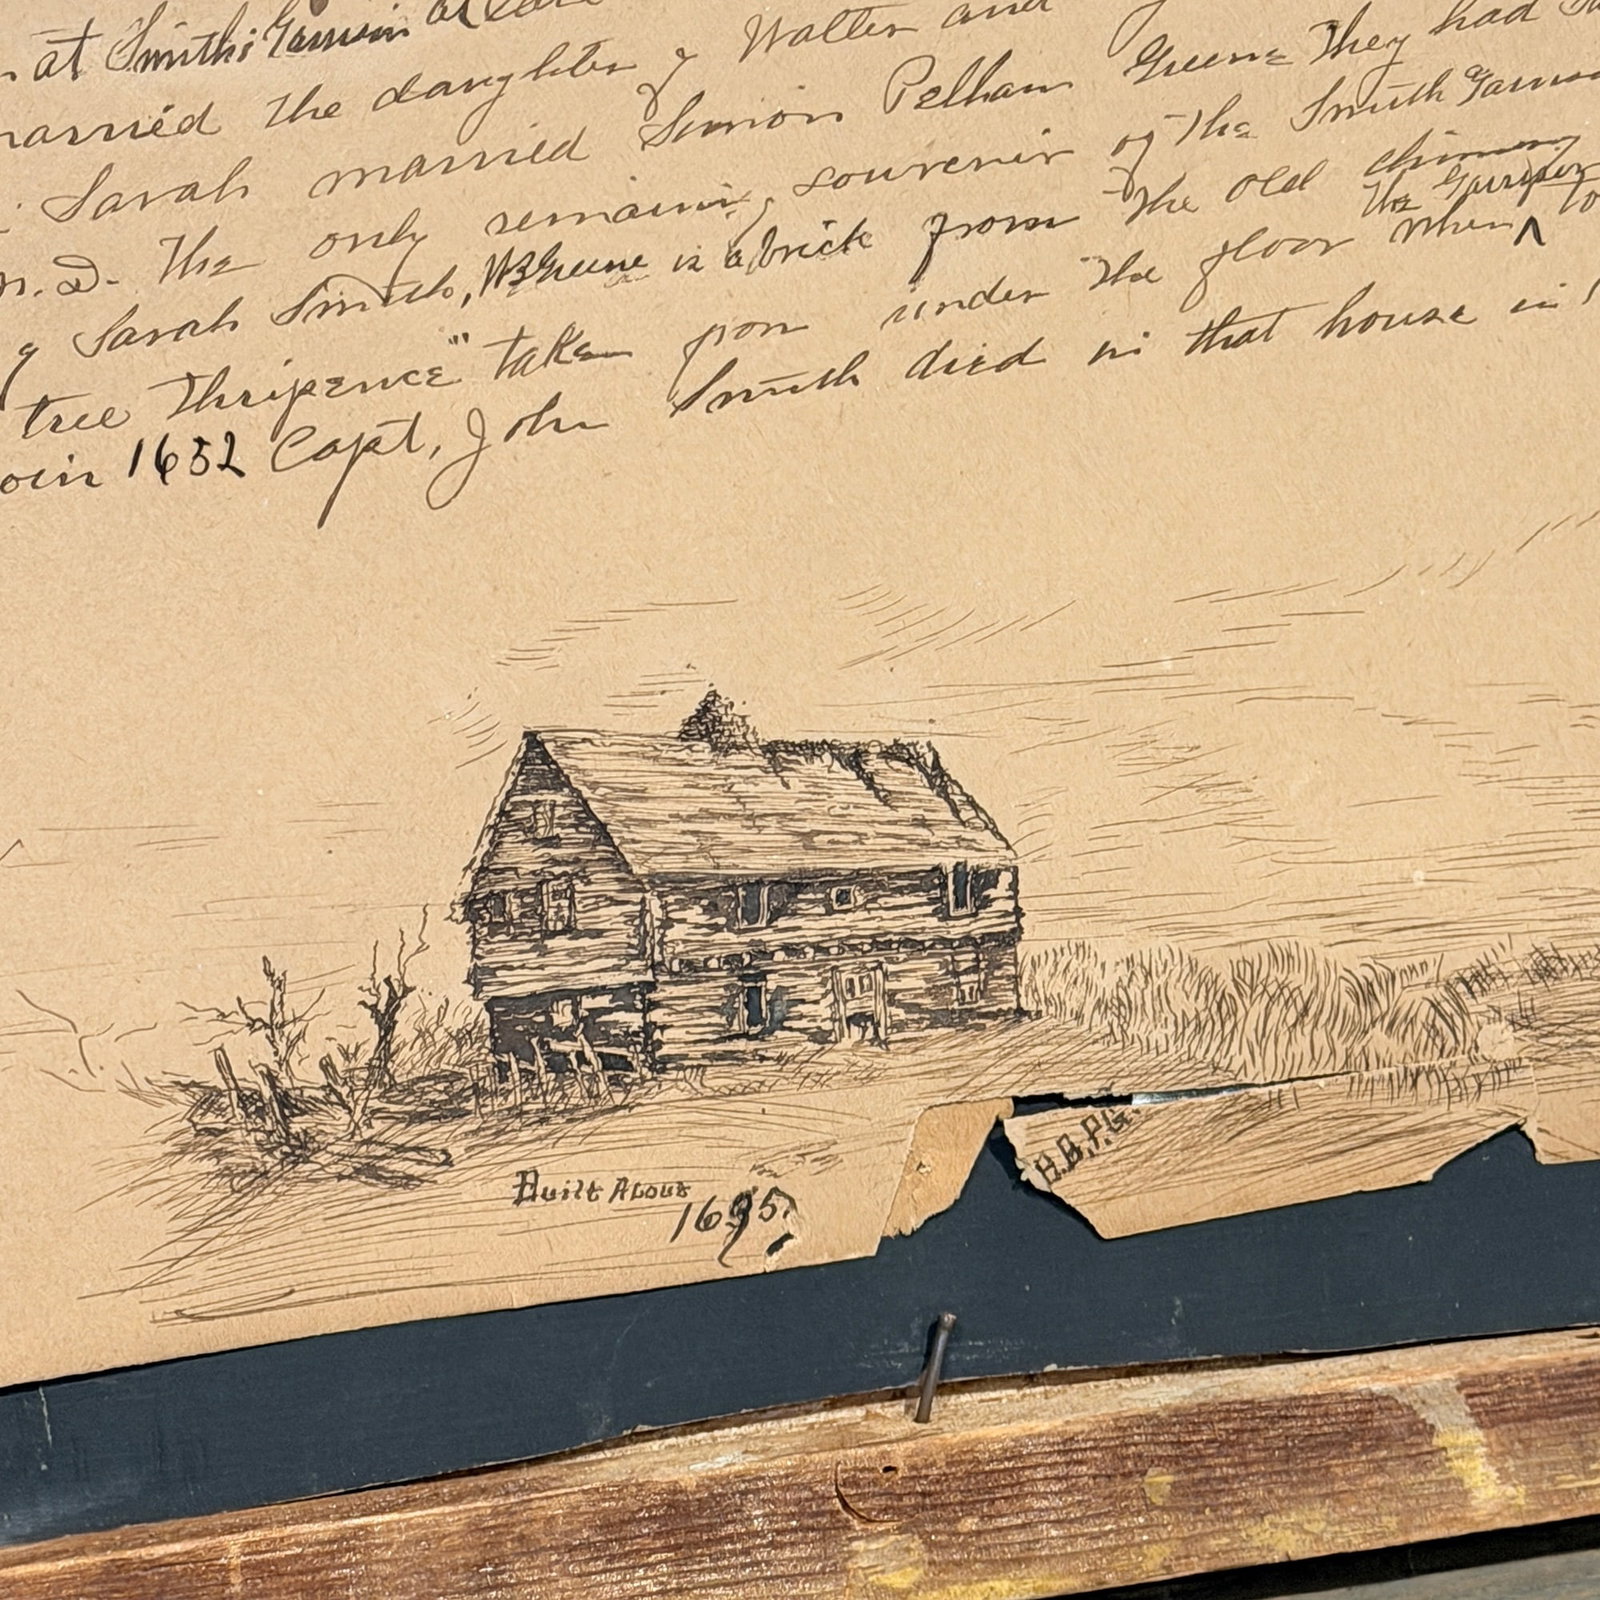 at Smith's Garrison at
married the daughter of Walter and
Sarah married Simion Pelham Greene They had
M.D. The only remaining souvenir of the Smith Garrison
of Sarah Smith, W B Greene is a brick from the old chimney
tree Thripence" taken from under the floor when ^ the Garrison
coin 1652 Capt, John Smith died in that house in
Built About
1695
B.B.P.G.